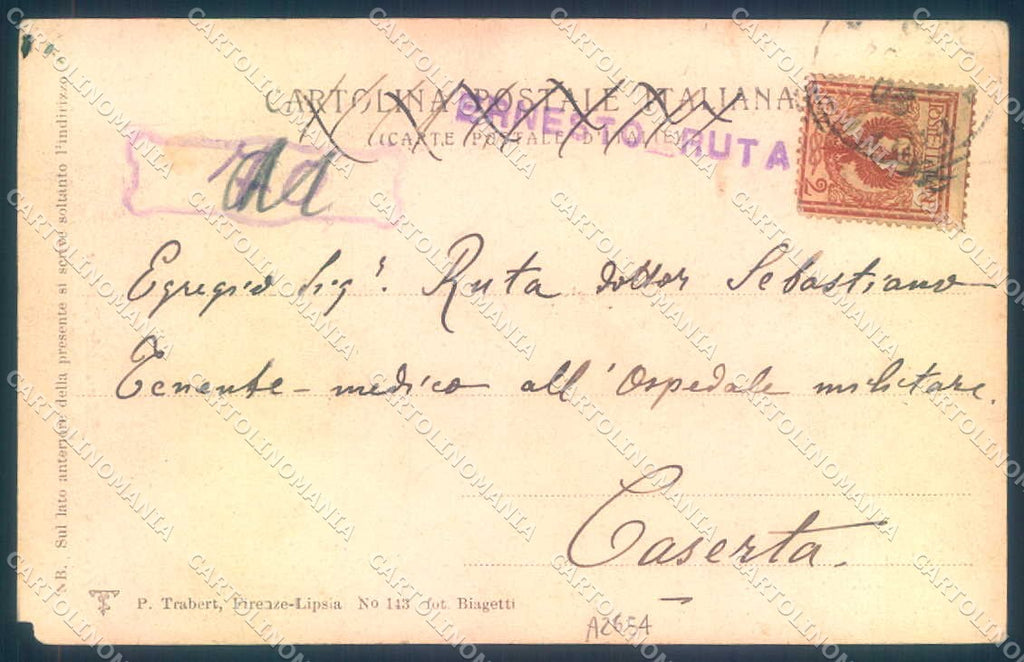 CARTOLINA POSTALE ITALIANA
(CARTE POSTALE D'
ERNESTO RUTA
Egregio Sigr. Ruta dottor Sebastiano
Tenente-medico all'Ospedale militare.
Caserta.
NB. Sul lato anteriore della presente si scrive soltanto l'indirizzo
P. Trabert, Firenze-Lipsia No 143 fot. Biagetti
A2654
CARTOLINOMANIA